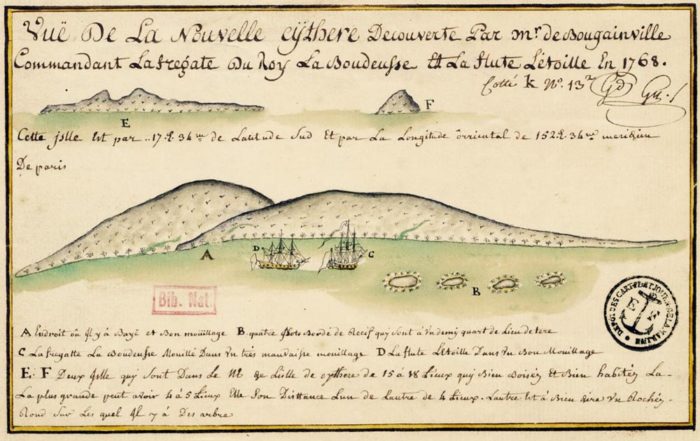 Vuë De La Nouvelle cythere Decouverte Par mr. de Bougainville
Commandant La fregate Du Roy La Boudeusse Et La flute Letoille En 1768.
Cotté k No. 13
E
F
Cette jslle Est par 17. 34 de Latitude Sud Et par La Longitude orriental de 152. 34 meridien
De paris
A
D
C
B
Bib. Nat
A Endroit où jl y à Baye et Bon mouillage B quatre jlots Bordé de Recif qui sont à un demy quart de Lieu de tere
C La fregatte La Boudeusse Mouillé Dans un trés mauvaise mouillage D La flute Letoille Dans un Bon Mouillage
E. F Deux jslle quy sont Dans Le de Lislle de cythere de 15 à 18 Lieux quy Bien Boisés et Bien habités La
La plus grande peut avoir 4 à 5 Lieux Elle son Distance Lun de Lautre de 4 Lieux. Lautre Est à Bien dire un Rochés
Rond sur Les quel jl y à Des arbre